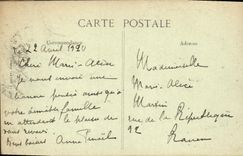 CARTE POSTALE
Correspondance
Adresse
22 Avril 1920
Chère Marie-Alice
Je vous envoie une
bonne pensée ainsi qu'à
votre aimable famille
en attendant le plaisir de
vous revoir.
Bons baisers Anne
Mademoiselle
Marie-Alice
Martin
rue de la République
92